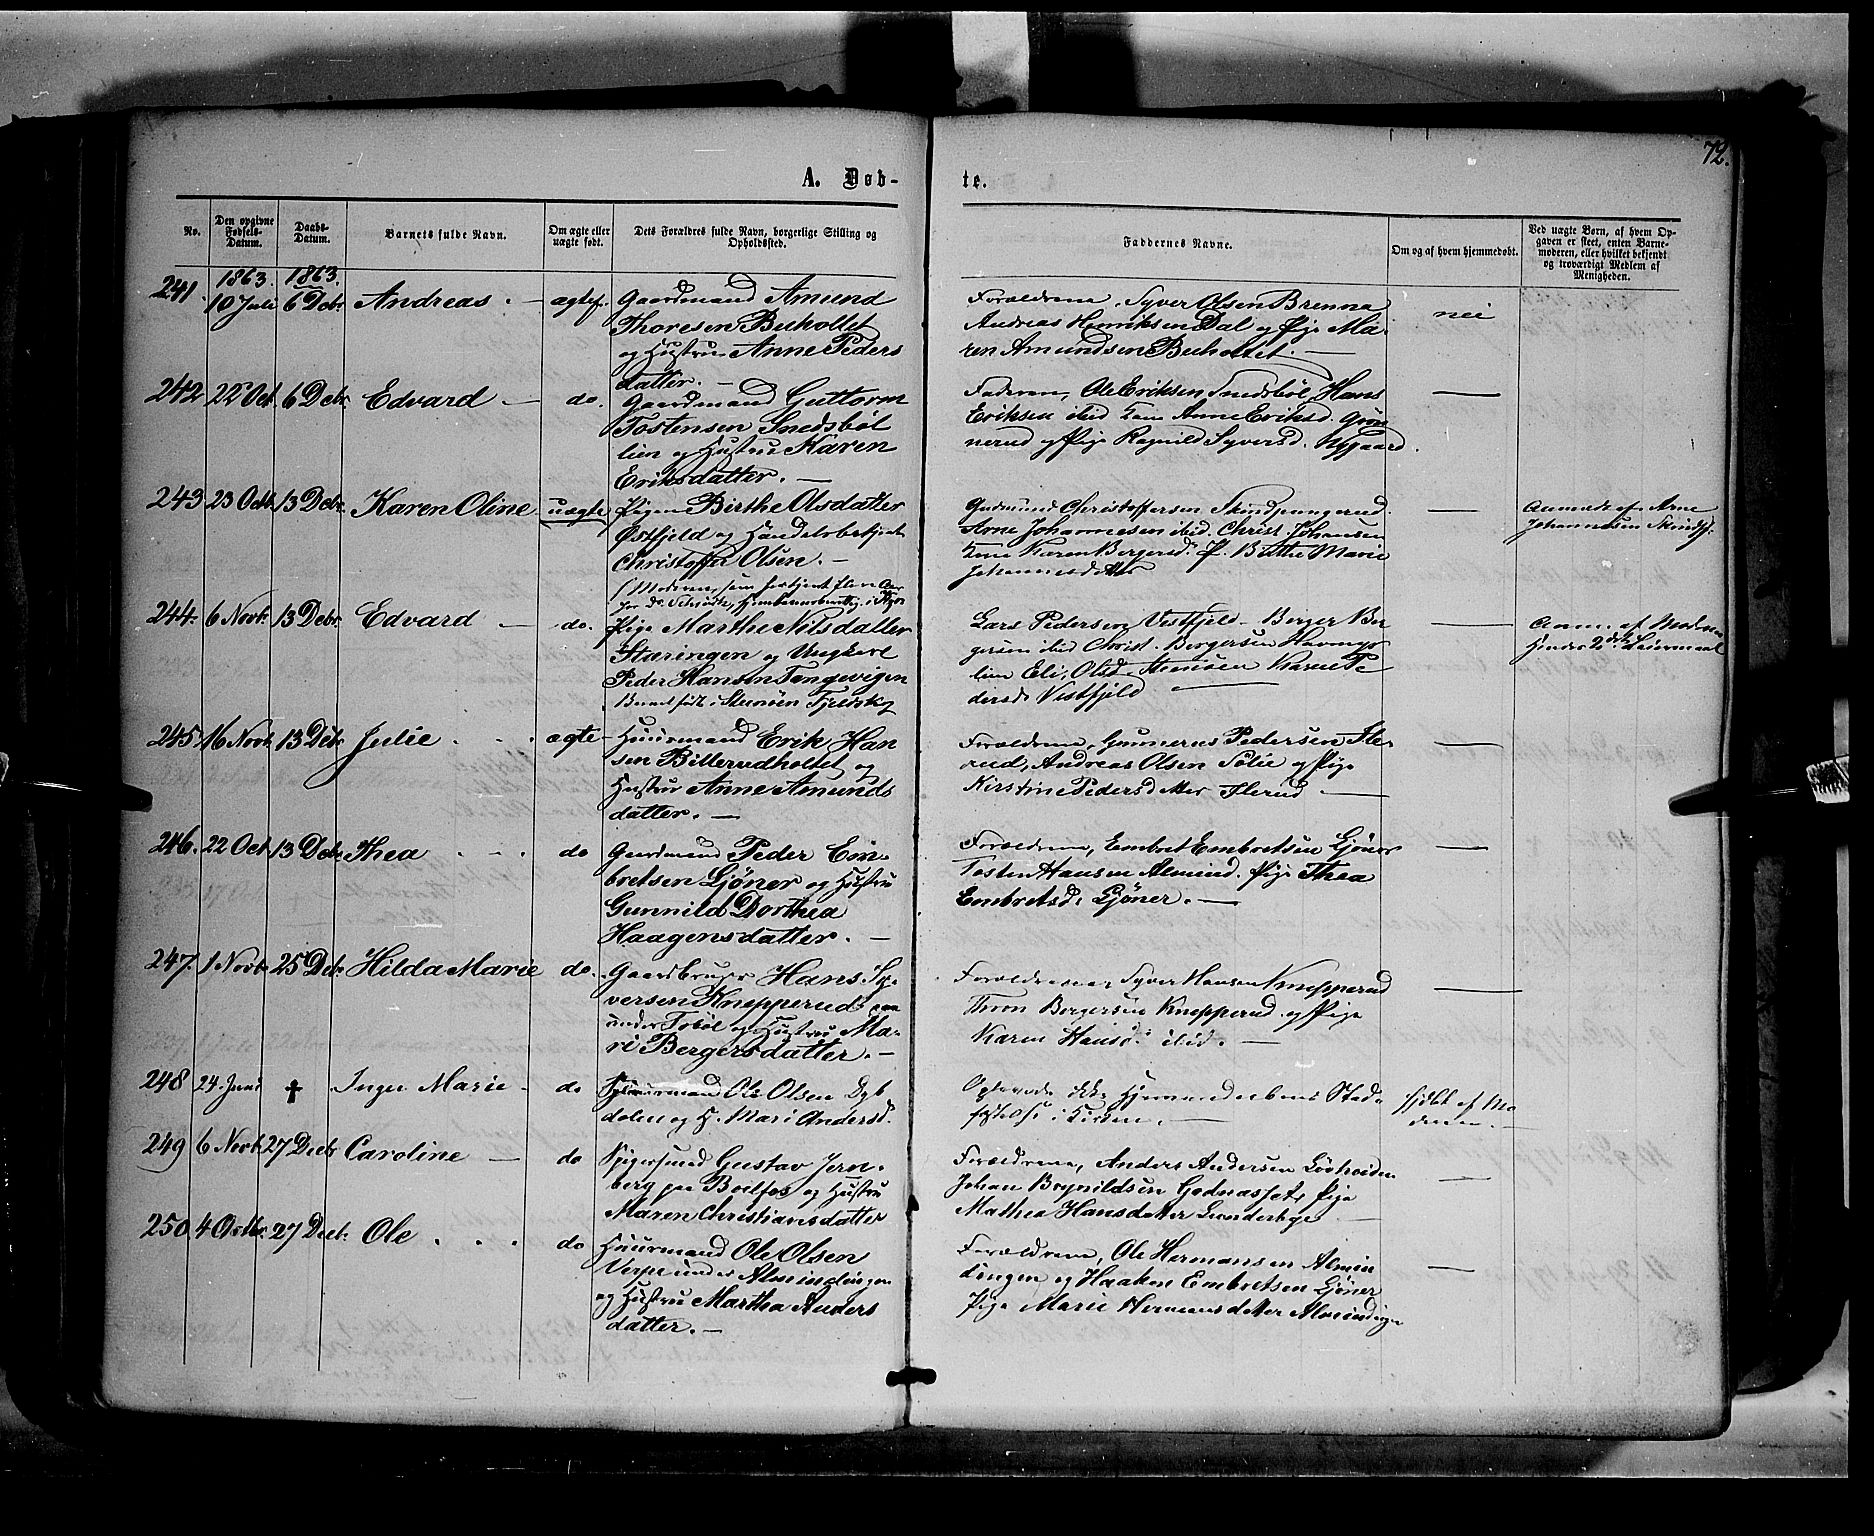 72.
A. Døb-
te.
No.
Den opgivne Fødsels-Datum.
Daabs-Datum.
Barnets fulde Navn.
Om ægte eller uægte født.
Dets Forældres fulde Navn, borgerlige Stilling og Opholdssted.
Faddernes Navne.
Om og af hvem hjemmedøbt.
Ved uægte Børn, af hvem Opgaven er skeet, enten Barnemoderen, eller hvilket bekjendt og troværdigt Medlem af Menigheden.
1863. 1863.
241. 10 Juli 6 Debr. Andreas. — ægtef.
Gaardmand Amund
Thoresen Buholtet
og Hustru Anne Peders
datter. —
Forældrene, Syver Olsen Brenna
Andreas Henriksen Dal og Pige Ma-
ren Amundsen Buholtet. —
nei
242 22 Oct. 6 Debr. Edvard — do.
Gaardmand Guttorm
Tostensen Snedsböl
lien og Hustru Karen
Eriksdatter. —
Faderen, Ole Eriksen Snedsböl, Hans
Eriksen ibid Kone Anne Eriksd. Grøn
nerud og Pige Ragnild Syversd. Nygaard.
243 23 Octb. 13 Debr. Karen Oline uægte
Pigen Birthe Olsdatter
Østfjeld og Handelsbetjent
Christoffer Olsen. —
Gudmund Christoffersen Skindpungrud.
Arne Johannesen ibid. Christ. Johansen
Kone Karen Bergersd. P. Birthe Marie
Johannesdatter
Anmeldt af Arne
Johannesen Skindp.
244. 6 Novbr. 13 Debr. Edvard — do.
Pige Marthe Nilsdatter
Stæringen og Ungkarl
Peder Hansen Tangevigen
Barnet født i Stensöen
Lars Pedersen Vestfjeld Berger Ber
gersen ibid Christ. Bergersen
lien Eli, Olsd. Stensöen Karen Pe
dersd. Vestfjeld
Anm. af Moderen
Hendes 2det Leiermaal
245. 16 Novb. 13 Debr Julie . . . ægte
Huusmand Erik Han
sen Billerudholtet og
Hustru Anne Amunds
datter. —
Forældrene, Gunnerus Pedersen Fle-
rud, Andreas Olsen Sölie og Pige
Kirstine Pedersdatter Flerud —
246. 22 Oct. 13 Debr. Thea . . . do
Gaardmand Peder Em-
bretsen Ljöner og Hustru
Gunnild Dorthea
Haagensdatter. —
Forældrene, Embret Embretsen Ljöner
Tosten Hansen Pige Thea
Embretsd. Ljöner. —
247. 1 Novb. 25 Debr. Hilda Marie do.
Gaardbruger Hans Sy-
versen Knepperud
under Tobøl og Hustru Ma-
ri Bergersdatter. —
Forældrene, Syver Hansen Knepperud
Thron Bergersen Knepperud og Pige
Karen Hansd. ibid. —
248 24. Juni † Inger Marie - do
Huusmand Ole Olsen Dyb
dalen og H. Mari Andersd.
Oplevede ikke Hjemmedaabens Stad-
fæstelse i Kirken. —
hjdöbt af Mo
deren. —
249 6 Novbr. 27 Decbr Caroline — do
Spigersmed Gustav Jern-
berg paa Boilfos og Hustru
Maren Christiansdatter
Forældrene, Anders Andersen Lövheiden
Johan Brynildsen Godnasset, Pige
Mathea Hansdatter Lunderhge
250. 4 Octbr. 27 Decbr. Ole . . . do
Huusmand Ole Olsen
Verpe under Almindingen
og Hustru Martha Anders
datter. —
Forældrene, Ole Hermansen Almin
dingen og Haaken Embretsen Ljöner
Pige Marie Hermansdatter Almindingen